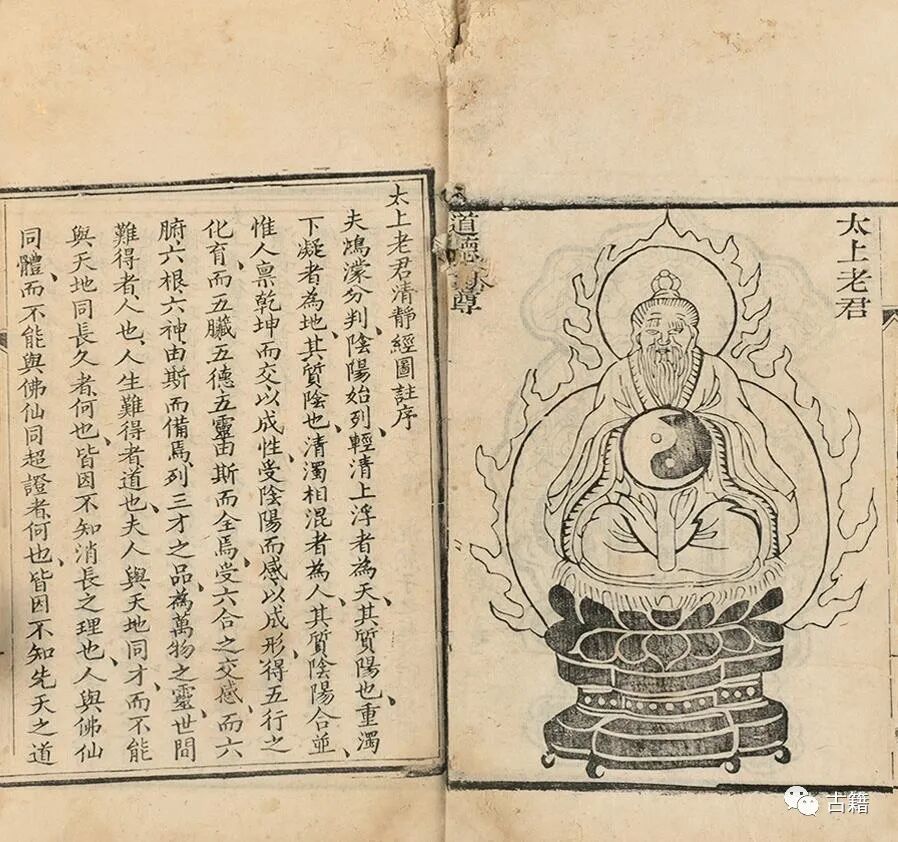 太上老君
道德
尊
太上老君清靜經圖註序
夫鴻濛分判、陰陽始列、輕清上浮者為天、其質陽也、重濁
下凝者為地、其質陰也、清濁相混者為人、其質陰陽合並、
惟人禀乾坤而交以成性、受陰陽而感以成形、得五行之
化育、而五臟五德五靈由斯而全焉、受六合之交感、而六
腑六根六神由斯而備焉、列三才之品、為萬物之靈、世間
難得者人也、人生難得者道也、夫人與天地同才、而不能
與天地同長久者、何也、皆因不知消長之理也、人與佛仙
同體、而不能與佛仙同超證者、何也、皆因不知先天之道
古籍